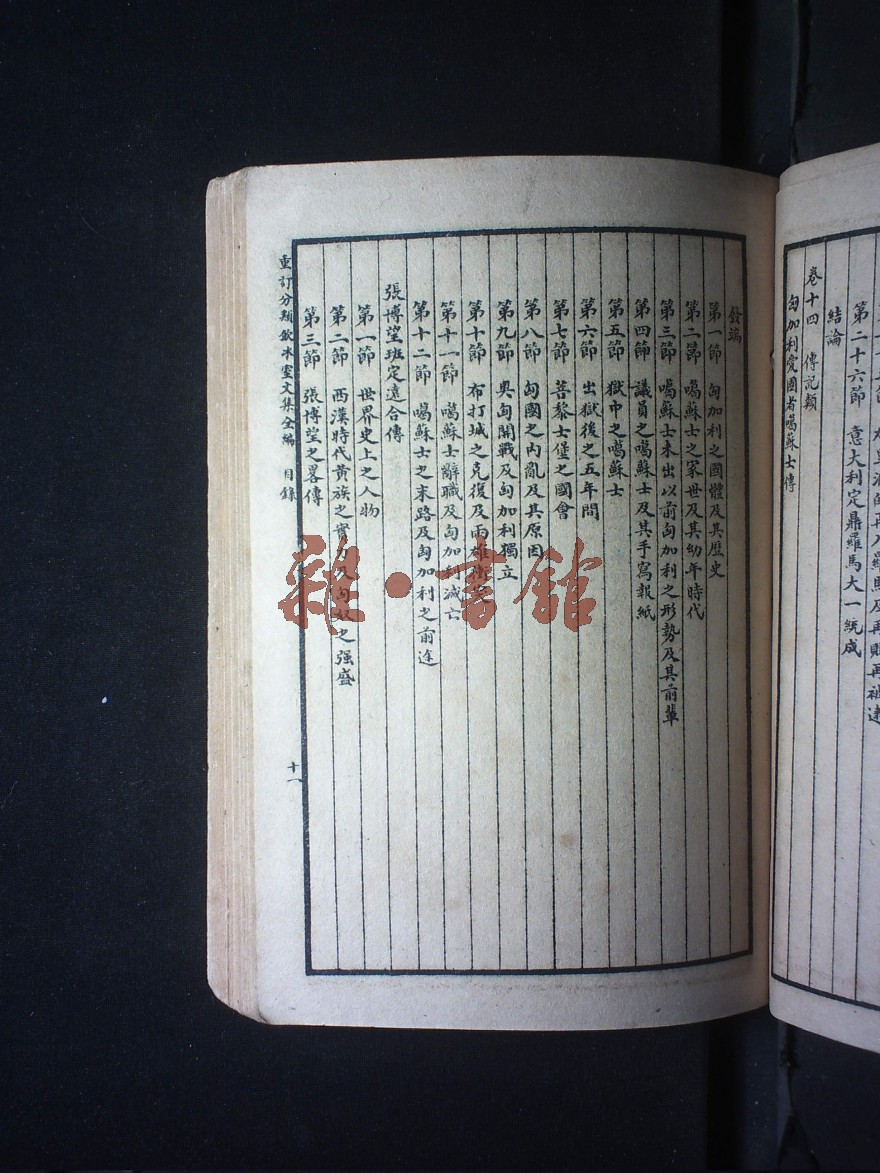 結論
第二十六節　意大利定鼎羅馬大一統成
卷十四　傳記類
匈加利愛國者噶蘇士傳
發端
第一節　匈加利之國體及其歷史
第二節　噶蘇士之家世及其幼年時代
第三節　噶蘇士未出以前匈加利之形勢及其前輩
第四節　議員之噶蘇士及其手寫報紙
第五節　獄中之噶蘇士
第六節　出獄後之五年間
第七節　菩黎士堡之國會
第八節　匈國之內亂及其原因
第九節　奧匈開戰及匈加利獨立
第十節　布打城之克復及兩雄衝突
第十一節　噶蘇士辭職及匈加利滅亡
第十二節　噶蘇士之末路及匈加利之前途
張博望班定遠合傳
第一節　世界史上之人物
第二節　西漢時代黃族之實力及匈奴之强盛
第三節　張博望之畧傳
重訂分類飲冰室文集全編　目錄
十一
雜·書館